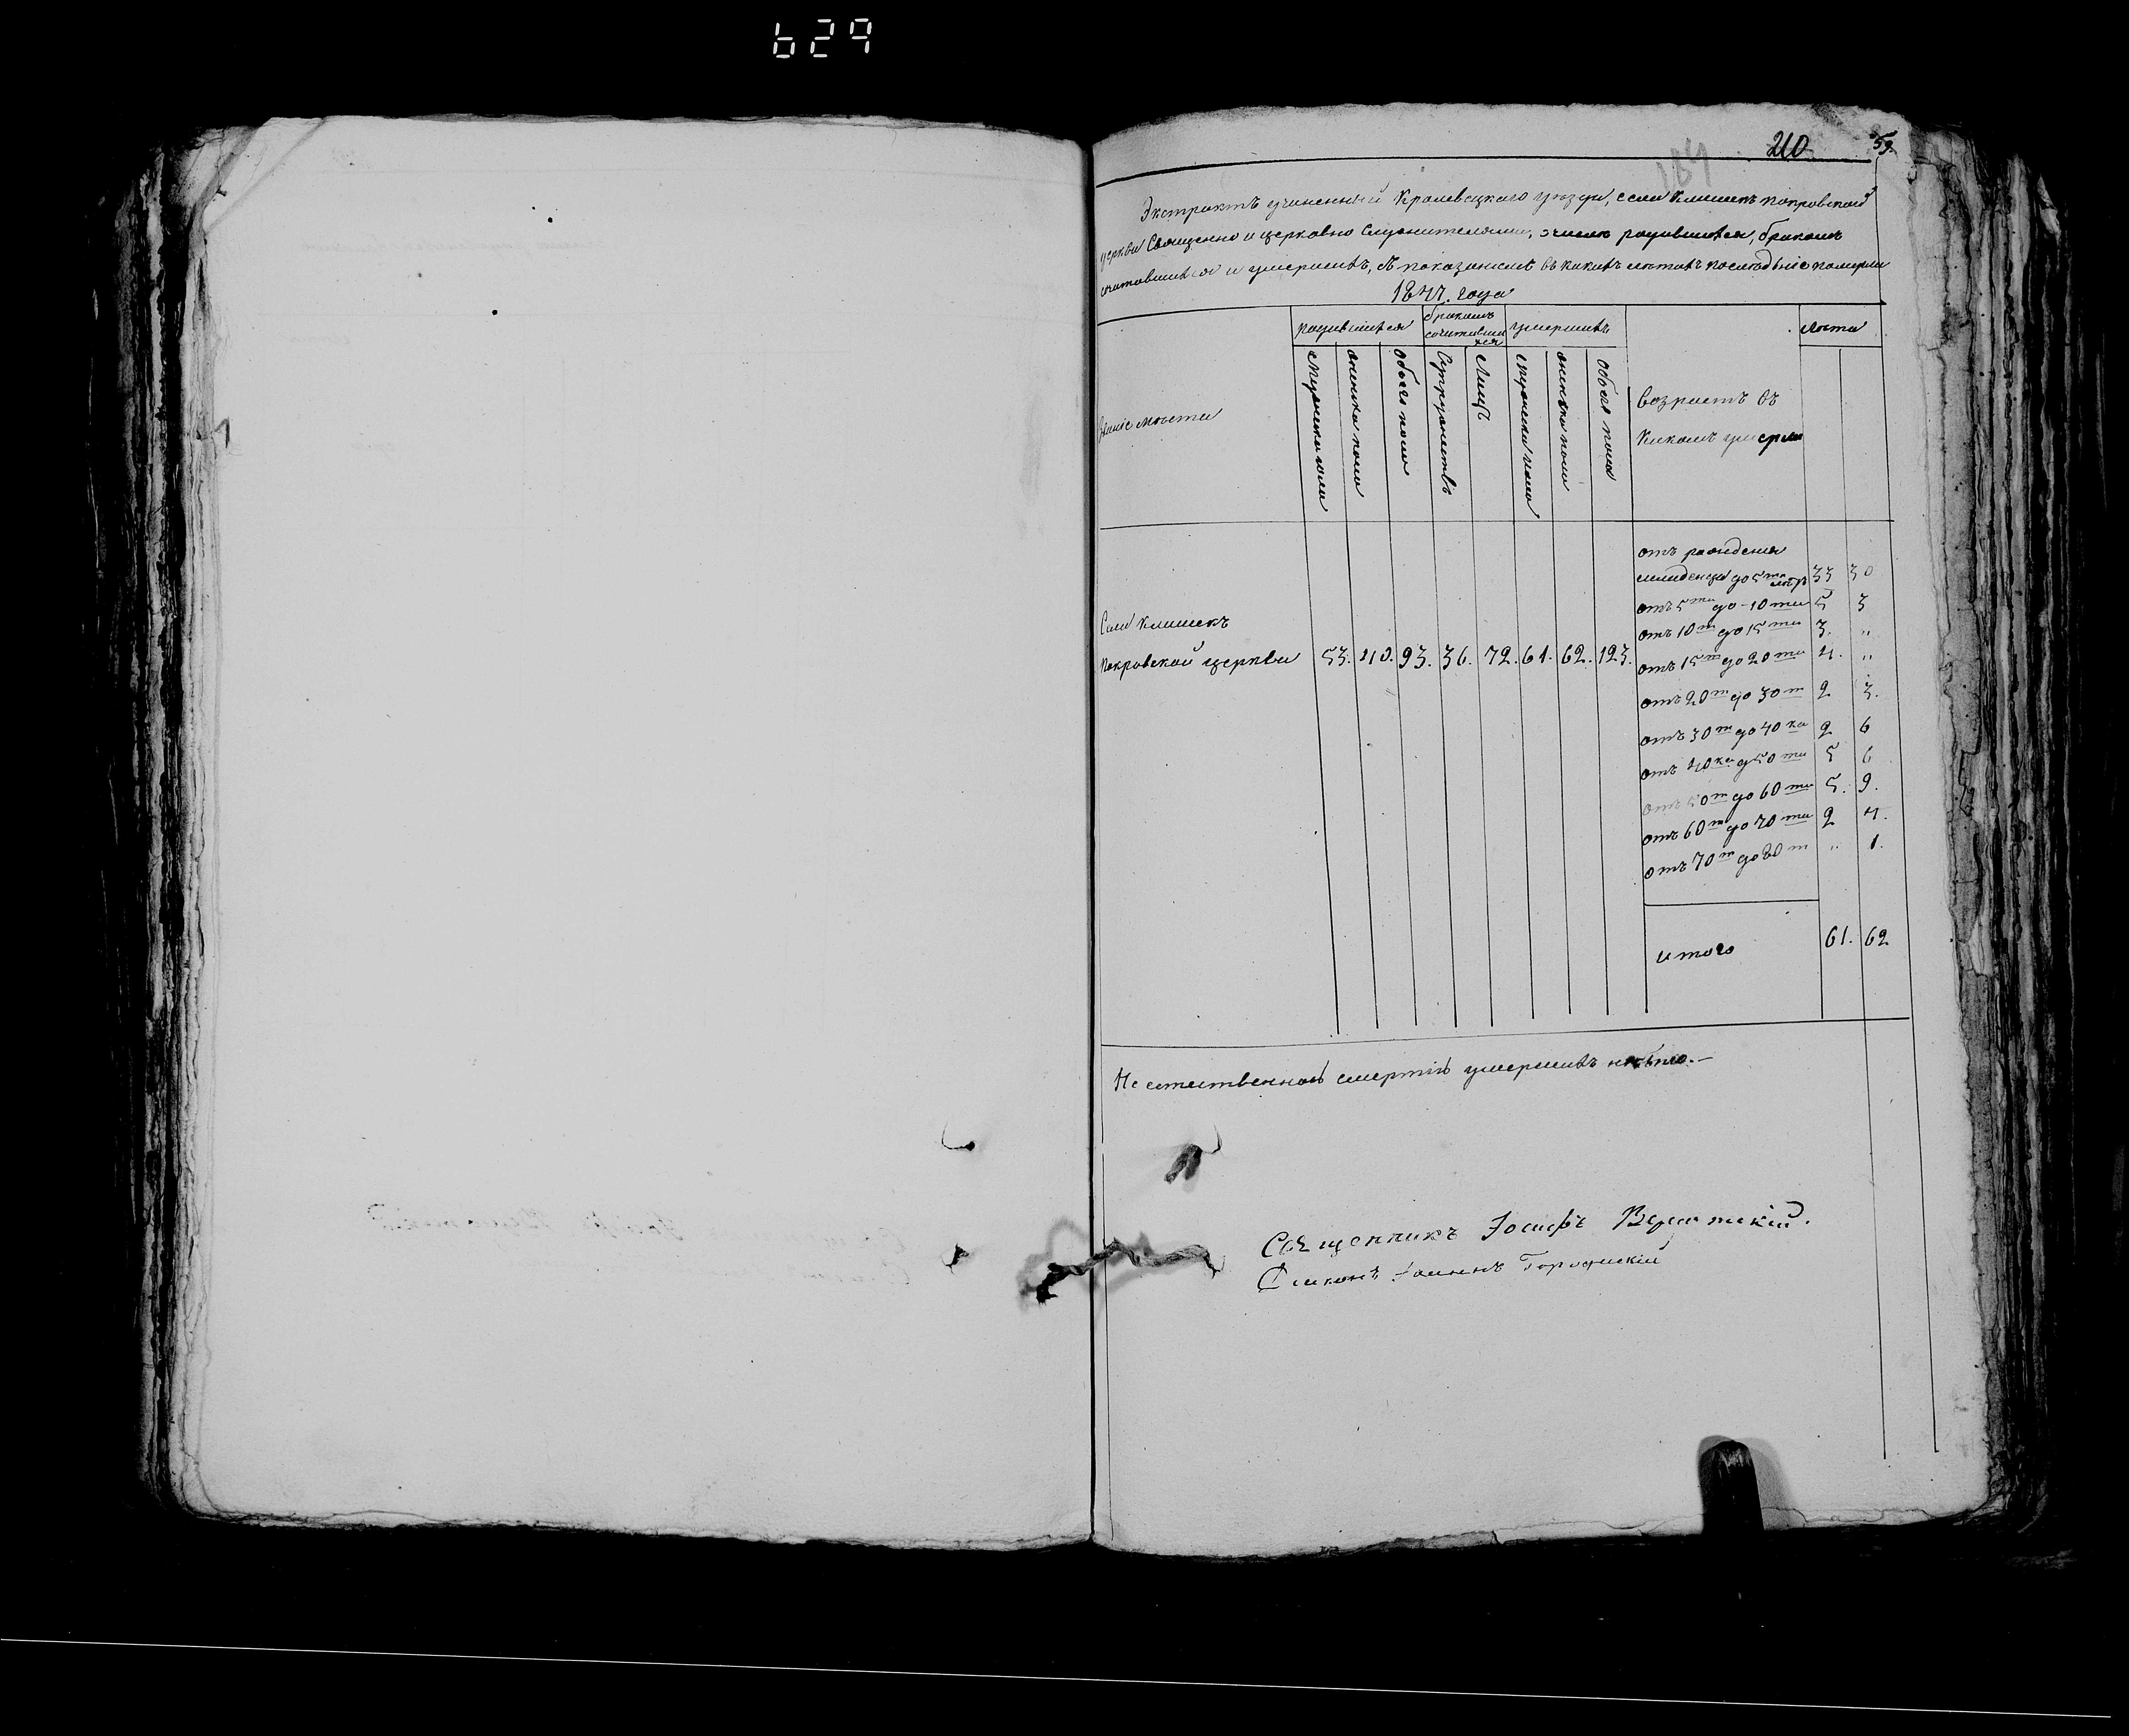 629
210 59
189
Экстрактъ учиненный Кролевецкаго уѣзда, села Клишекъ покровской
церкви Священно и церковно Служителями, о числѣ родившихся, бракомъ
сочитавшихся и умершихъ, съ показаніемъ въ какихъ лѣтахъ последніе померли
1847. года
званіе мѣста
родившихся
бракомъ сочитавшихся
умершихъ
лѣта
мужеска пола
женска пола
обоего пола
Супружествъ
Лицъ
мужеска пола
женска пола
обоего пола
возрастъ въ
какомъ умерли
Села Клишекъ
Покровской церкви 53. 40. 93. 36. 72. 61. 62. 123.
отъ рождения
младенца до 5ти лѣтъ 33 30
отъ 5ти до 10ти 5 3
отъ 10т до 15ти 3. "
отъ 15т до 20ти 4. "
отъ 20т до 30т 2 3.
отъ 30т до 40ка 2 6
отъ 40ка до 50ти 5 6
отъ 50т до 60ти 5. 9.
отъ 60т до 70ти 2 4.
отъ 70т до 80т " 1.
итого 61. 62
Не естественною смертію умершихъ небыло.—
Священникъ Іосифъ
Діаконъ Іоаннъ